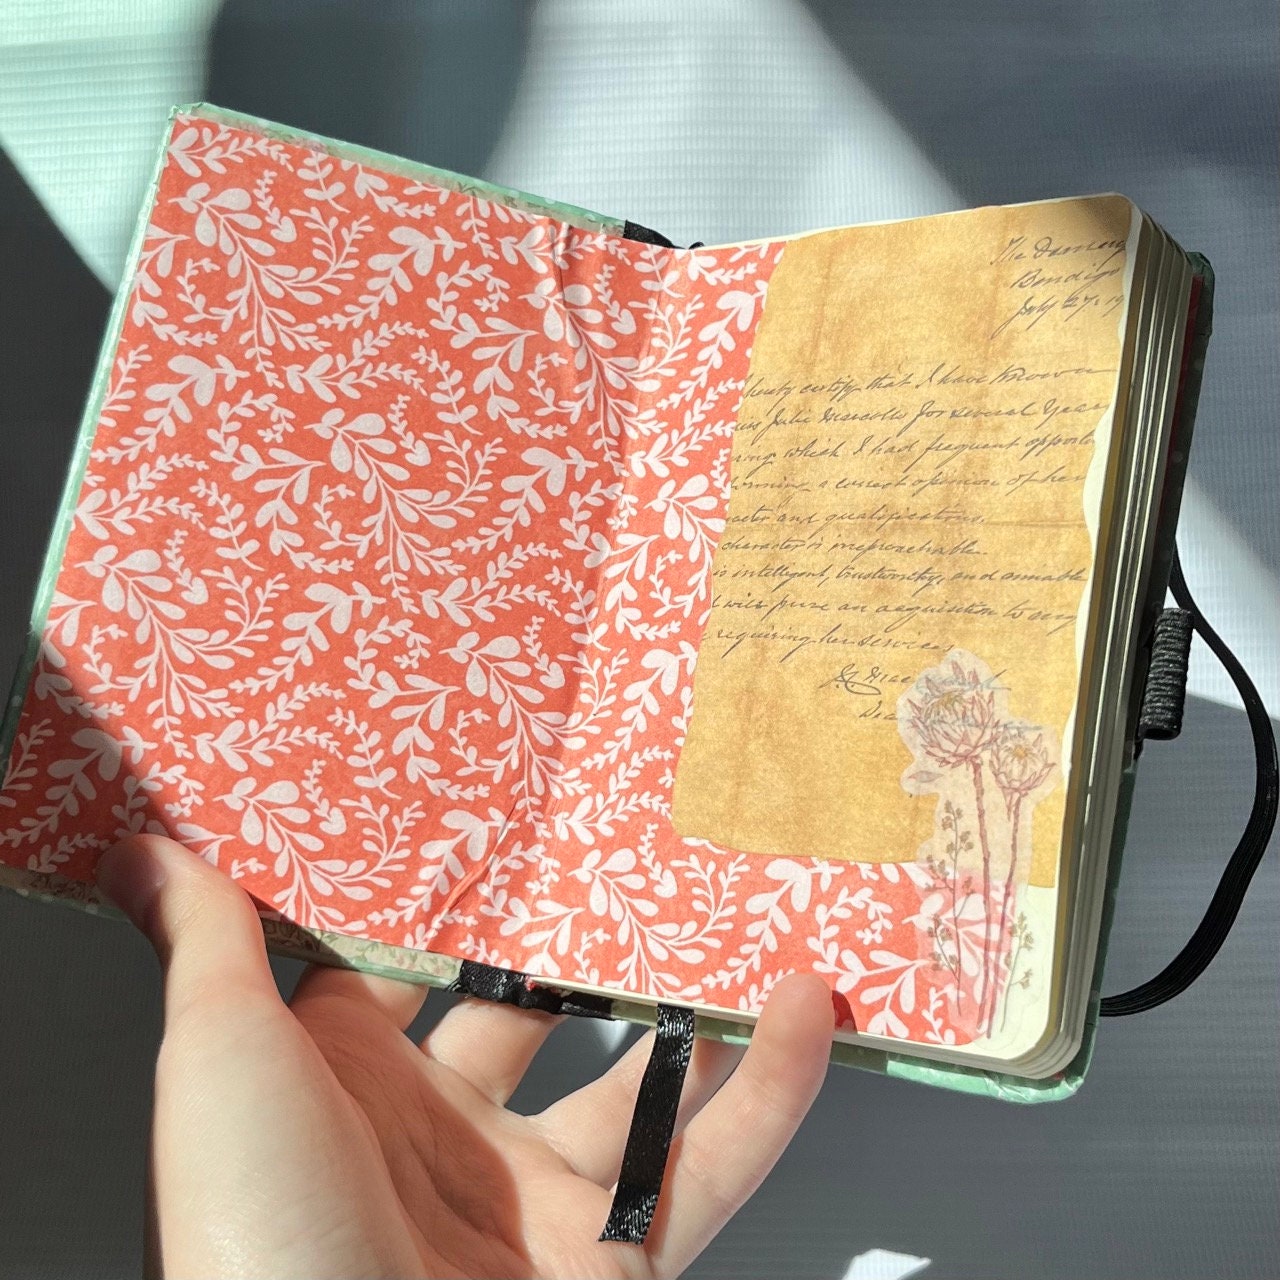 The Deanery
Bendigo
July 27. 19
hereby certify that I have known
iss Julie Marcollo for several Years
ring which I had frequent opportu
forming a correct opinion of her
racter and qualifications.
character is irreproachable.
is intelligent, trustworthy, and amiable
will prove an acquisition to any
requiring her services
Dea